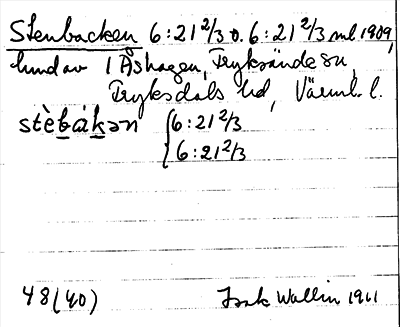 Stenbacken 6:21 2/3 o. 6:21 2/3 ml 1909,
hmd av 1 Åshagen, Fryksände sn,
Fryksdals hd, Värml. l.
stèbákən {6:21 2/3
6:21 2/3
48 (40) Isak Wallin 1911